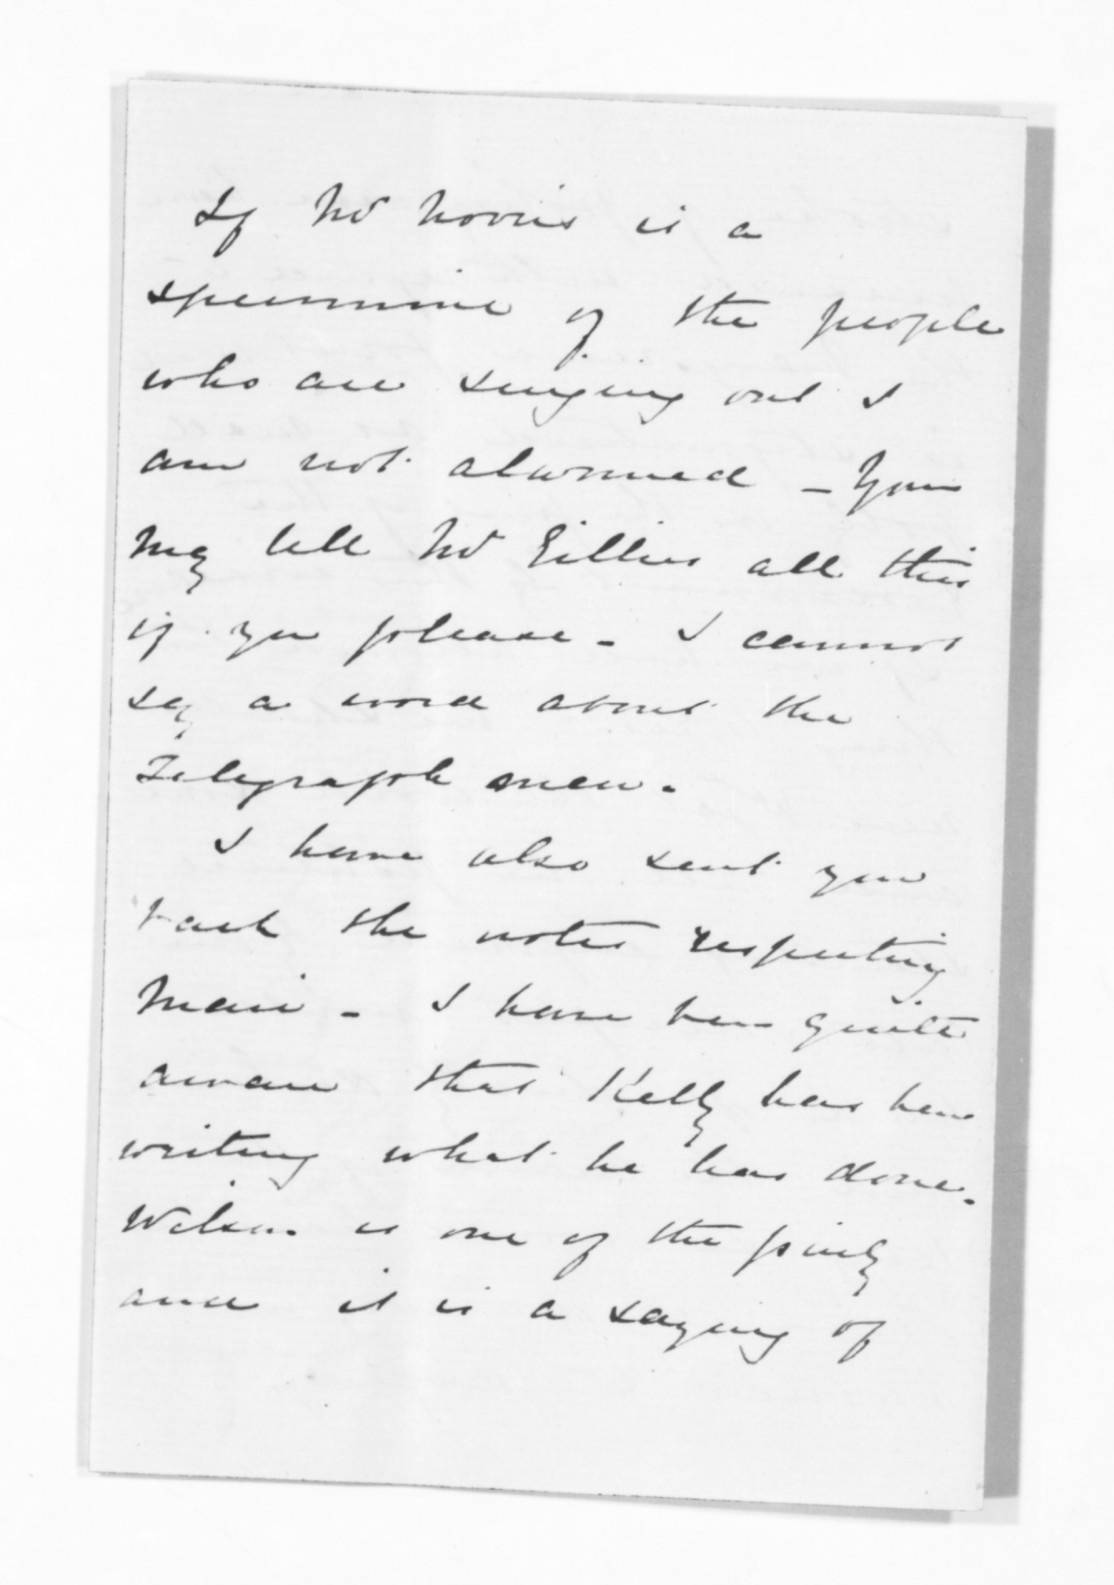 If Mr Norris is a
specimine of the people
who are singing out I
am not alarmed - You
may tell Mr Gillies all this
if you please - I cannot
say a word about the
Telegraph men.
I have also sent you
back the notes respecting
Mair - I have been quite
aware that Kelly has been
writing what he has done.
Wilson is one of the party
and it is a saying of